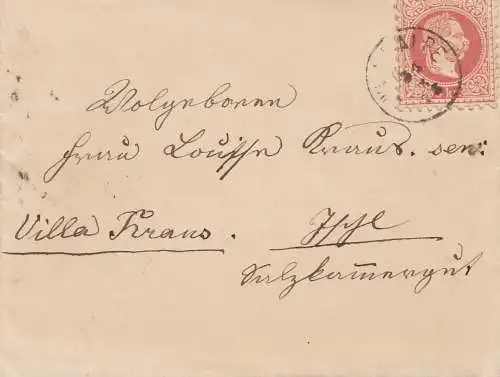 Wolgeboren
Frau Louise Kraus. sen:
Villa Kraus. Ischl
Salzkammergut